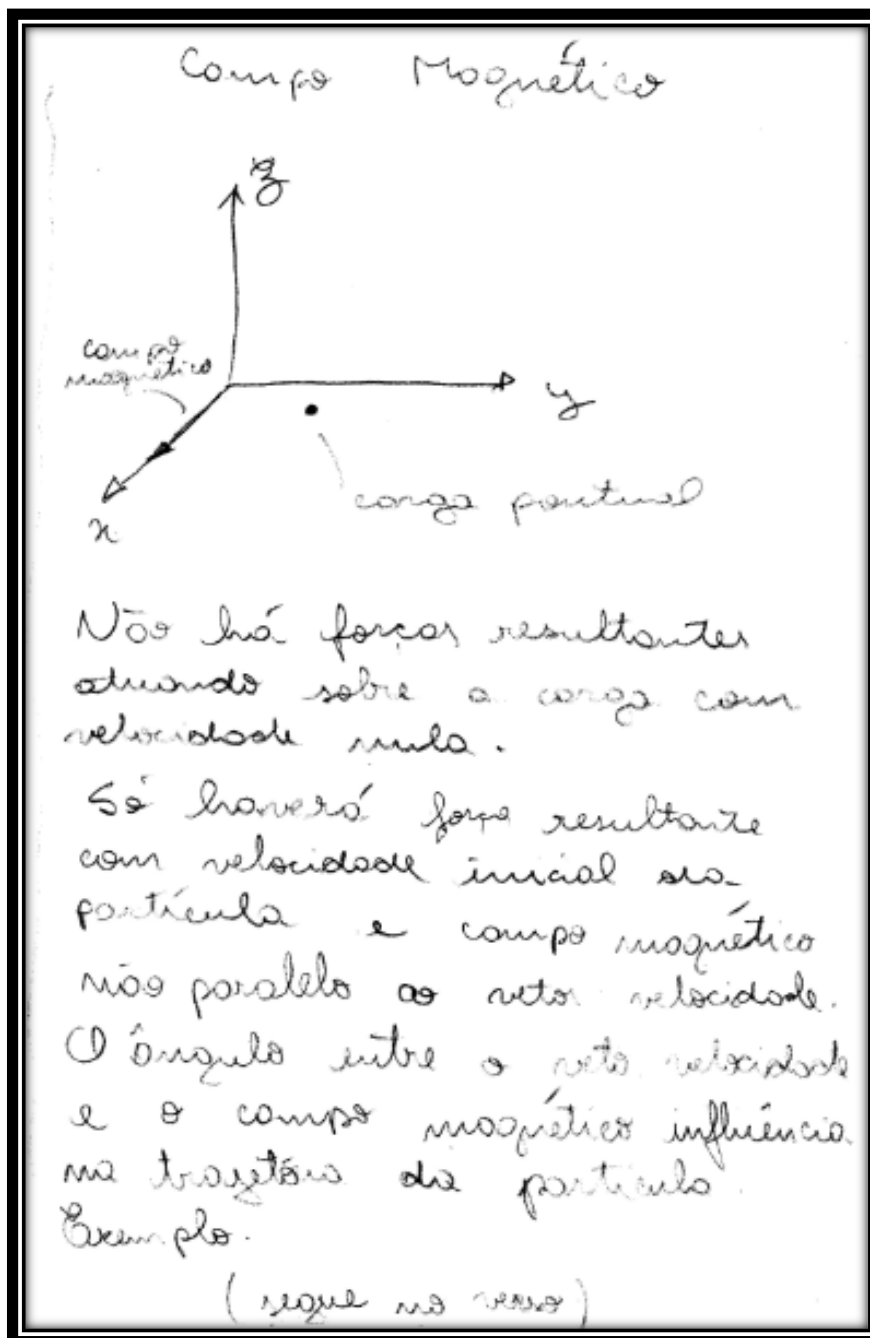 Campo Magnético
z
campo
magnético
y
carga pontual
x
Não há forças resultantes
atuando sobre a carga com
velocidade nula.
Só haverá força resultante
com velocidade inicial da
partícula e campo magnético
não paralelo ao vetor velocidade.
O ângulo entre o veto velocidade
e o campo magnético influência
na trajetória da partícula.
Exemplo.
(segue no verso)